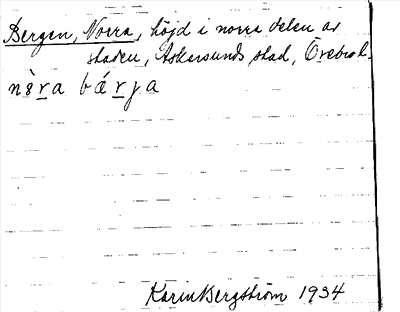 Bergen, Norra, höjd i norra delen av
staden, Askersunds stad, Örebro l.
nò̱ra bǽrja
Karin Bergström 1934